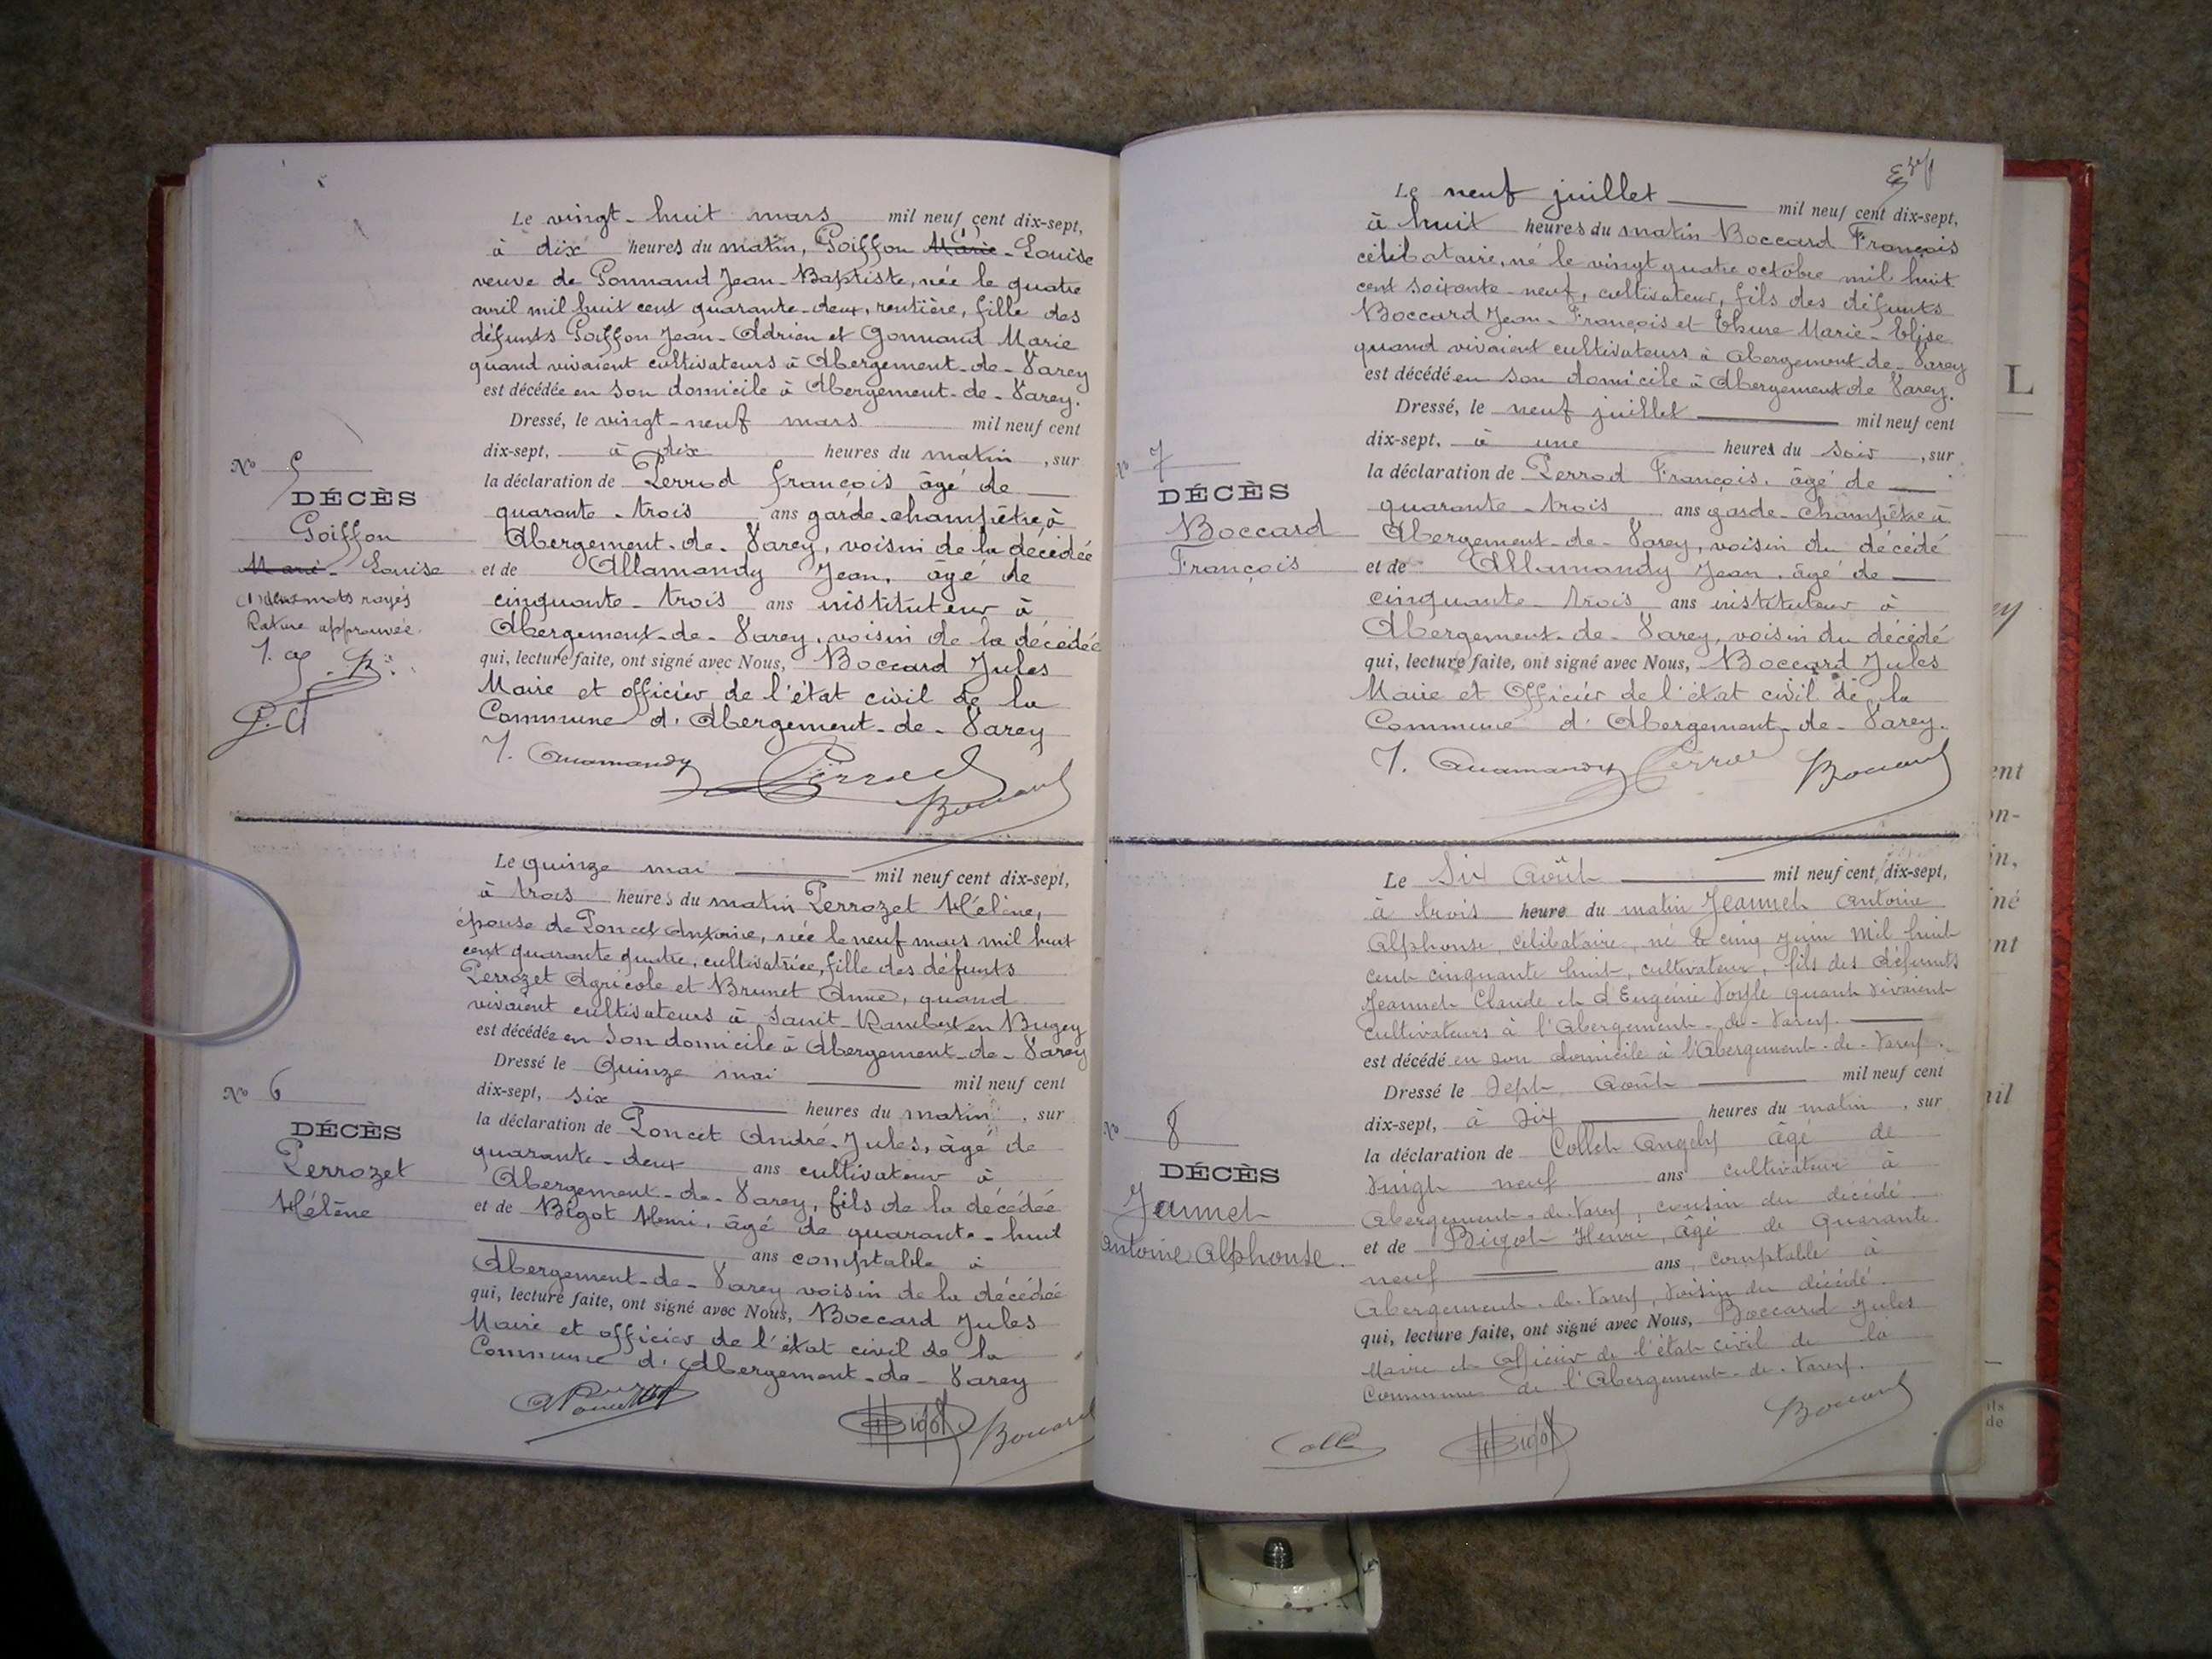 Le vingt-huit mars mil neuf cent dix-sept,
à dix heures du matin, Goiffon Marie-Louise
veuve de Gonnand Jean-Baptiste, née le quatre
avril mil huit cent quarante-deux, rentière, fille des
défunts Goiffon Jean-Adrien et Gonnand Marie
quand vivaient cultivateurs à Abergement-de-Varey
est décédée en son domicile à Abergement-de-Varey.
Dressé, le vingt-neuf mars mil neuf cent
dix-sept, à dix heures du matin, sur
la déclaration de Perrod françois âgé de
quarante-trois ans garde-champêtre à
Abergement-de-Varey, voisin de la décédée
et de Allamandy Jean, âgé de
cinquante-trois ans instituteur à
Abergement-de-Varey, voisin de la décédée
qui, lecture faite, ont signé avec Nous, Boccard Jules
Maire et officier de l'état civil de la
Commune d'Abergement-de-Varey
J. Allamandy Perrod
Boccard
No 5
DÉCÈS
Goiffon
Marie-Louise
(1) deux mots rayés
Rature approuvée.
J. A. B.
Le quinze mai mil neuf cent dix-sept,
à trois heures du matin Perrozet Hélène,
épouse de Poncet Antoine, née le neuf mars mil huit
cent quarante quatre, cultivatrice, fille des défunts
Perrozet Agricole et Brunet Anne, quand
vivaient cultivateurs à Saint-Rambert en Bugey
est décédée en son domicile à Abergement-de-Varey
Dressé le Quinze mai mil neuf cent
dix-sept, six heures du matin, sur
la déclaration de Poncet André-Jules, âgé de
quarante-deux ans cultivateur à
Abergement-de-Varey, fils de la décédée
et de Bigot Henri, âgé de quarante-huit
ans comptable à
Abergement-de-Varey voisin de la décédée
qui, lecture faite, ont signé avec Nous, Boccard Jules
Maire et officier de l'état civil de la
Commune d'Abergement-de-Varey
A Poncet H Bigot Boccard
No 6
DÉCÈS
Perrozet
Hélène
Le neuf juillet mil neuf cent dix-sept,
à huit heures du matin Boccard François
célibataire, né le vingt quatre octobre mil huit
cent soixante-neuf, cultivateur, fils des défunts
Boccard Jean-François et Marie-Elise
quand vivaient cultivateurs à Abergement-de-Varey
est décédé en son domicile à Abergement de Varey.
Dressé, le neuf juillet mil neuf cent
dix-sept, à une heures du soir, sur
la déclaration de Perrod François, âgé de
quarante-trois ans garde-champêtre à
Abergement-de-Varey, voisin du décédé
et de Allamandy Jean, âgé de
cinquante-trois ans instituteur à
Abergement-de-Varey, voisin du décédé
qui, lecture faite, ont signé avec Nous, Boccard Jules
Maire et Officier de l'état civil de la
Commune d'Abergement-de-Varey.
J. Allamandy Perrod Boccard
No 7
DÉCÈS
Boccard
François
Le Six Août mil neuf cent dix-sept,
à trois heure du matin Jeannet Antoine
Alphonse, célibataire, né le cinq Juin Mil huit
cent cinquante huit, cultivateur, fils des défunts
Jeannet Claude et d'Eugénie quant vivaient
cultivateurs à l'Abergement-de-Varey.
est décédé en son domicile à l'Abergement-de-Varey.
Dressé le Sept Août mil neuf cent
dix-sept, à Six heures du matin, sur
la déclaration de Collet Angely âgé de
Vingt neuf ans cultivateur à
Abergement-de-Varey, cousin du décédé
et de Bigot Henri, âgé de Quarante
neuf ans, comptable à
Abergement-de-Varey, Voisin du décédé.
qui, lecture faite, ont signé avec Nous, Boccard Jules
Maire et Officier de l'état civil de la
Commune de l'Abergement-de-Varey.
Collet H Bigot Boccard
No 8
DÉCÈS
Jeannet
Antoine Alphonse.